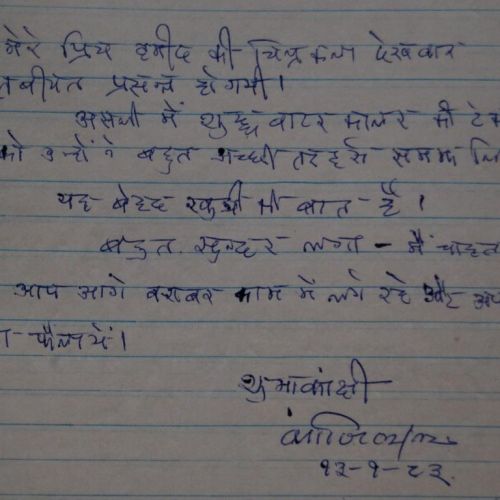 मेरे प्रिय हमीद की चित्रकला देखकर
तबीयत प्रसन्न हो गयी।
असल में शुद्ध वाटर कलर की टेक
को उन्होंने बहुत अच्छी तरह से समझ लि
यह बेहद खुशी की बात है।
बहुत सुन्दर लगा - मैं चाहत
आप आगे बराबर काम में लगे रहे और
फैलायें।
शुभाकांक्षी
१३-१-८३.